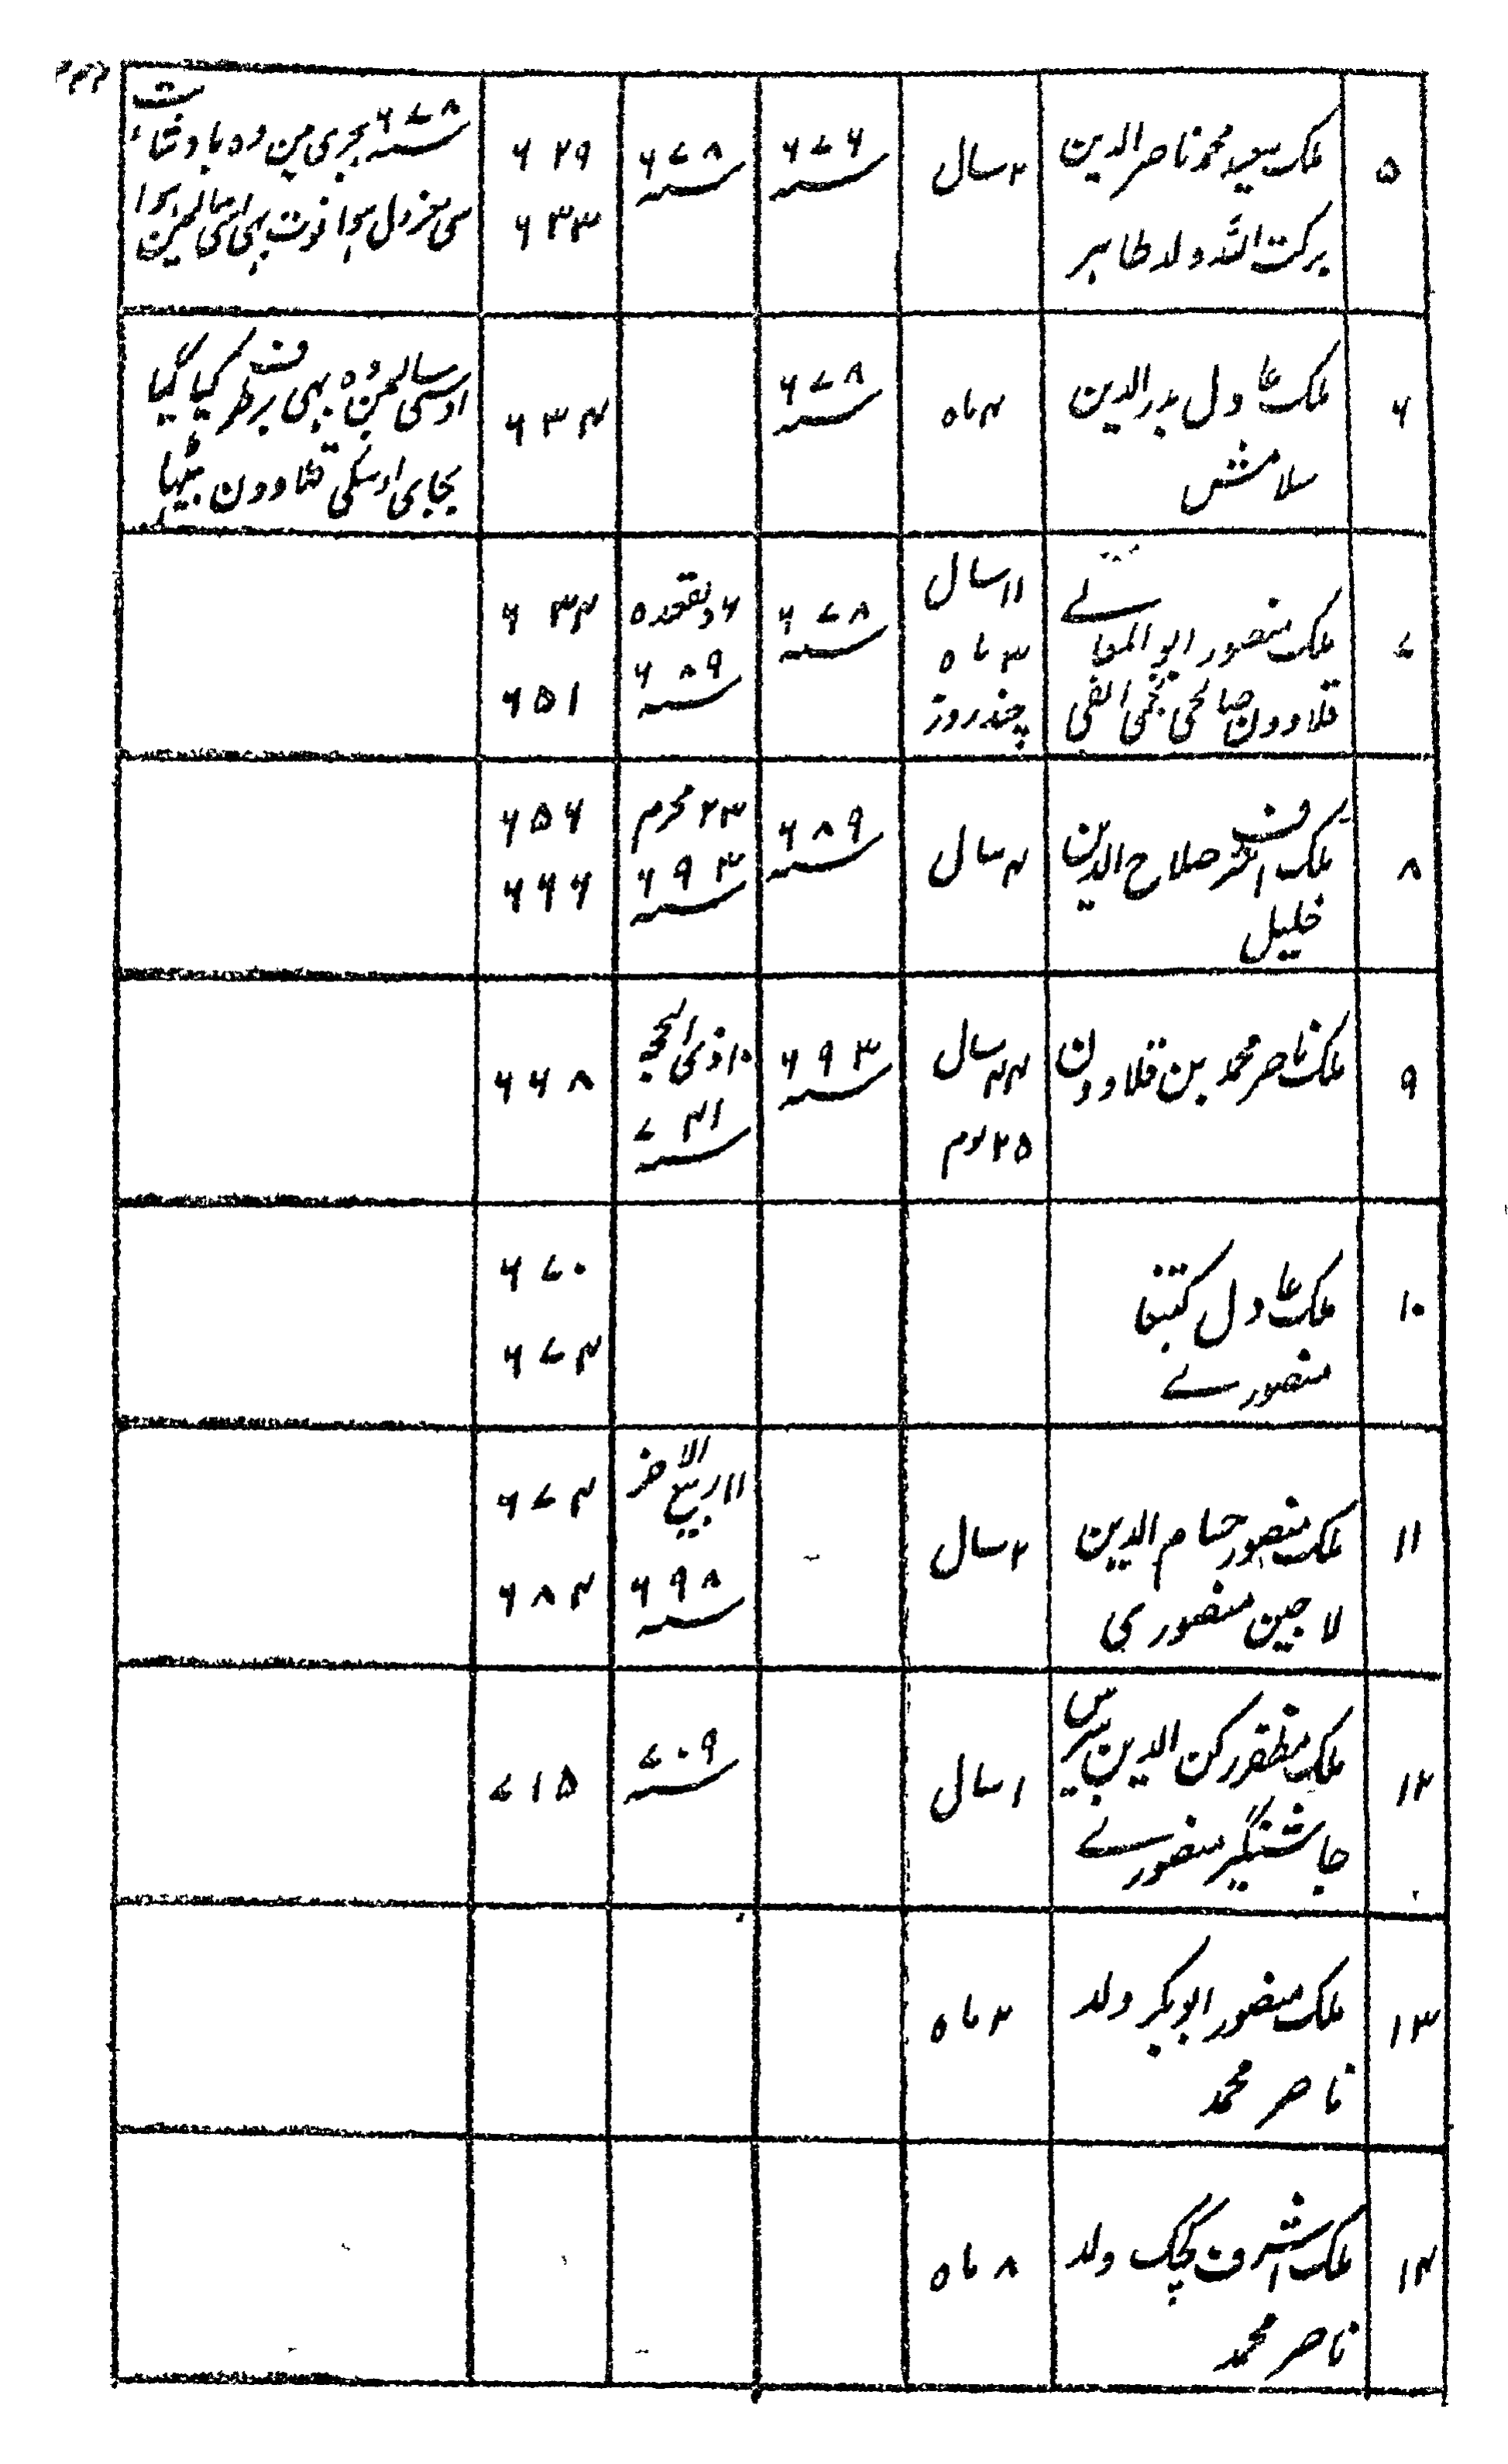 ۵
ملک سعید محمد ناصر الدین
برکت اللہ ولد طاہر
۲ سال
۶۷۶
۶۷۸
۶۲۹
۶۳۳
۶۷۸ ہجری مین وہ بادشاہت
سی معزول ہوا فوت بہی اسی سالمین ہوا
۶
ملک عادل بدر الدین
سلامش
۴ ماہ
۶۷۸
۶۳۴
اوسی سالمین وہ بہی برطرف کیا گیا
بجای اوسکی قلاوون بیٹہا
۷
ملک منصور ابو المعالے
قلاوون صالحی نجمی الفی
۱۱ سال
۳ ماہ
چند روز
۶۷۸
۶ ذیقعدہ
۶۸۹
۶۳۴
۶۵۱
۸
ملک اشرف صلاح الدین
خلیل
۴ سال
۶۸۹
۲۳ محرم
۶۹۳
۶۵۶
۶۶۶
۹
ملک ناصر محمد بن قلاوون
۴۴ سال
۲۵ یوم
۶۹۳
۱۰ ذی الحجہ
۷۴۱
۶۶۸
۱۰
ملک عادل کتبغا
منصورے
۶۷۰
۶۷۴
۱۱
ملک منصور حسام الدین
لاجین منصوری
۲ سال
۱۱ ربیع الاخر
۶۹۸
۶۷۴
۶۸۴
۱۲
ملک مظفر رکن الدین بیبرس
جاشنگیر منصورے
۱ سال
۷۰۹
۷۱۵
۱۳
ملک منصور ابوبکر ولد
ناصر محمد
۲ ماہ
۱۴
ملک اشرف کچک ولد
ناصر محمد
۸ ماہ